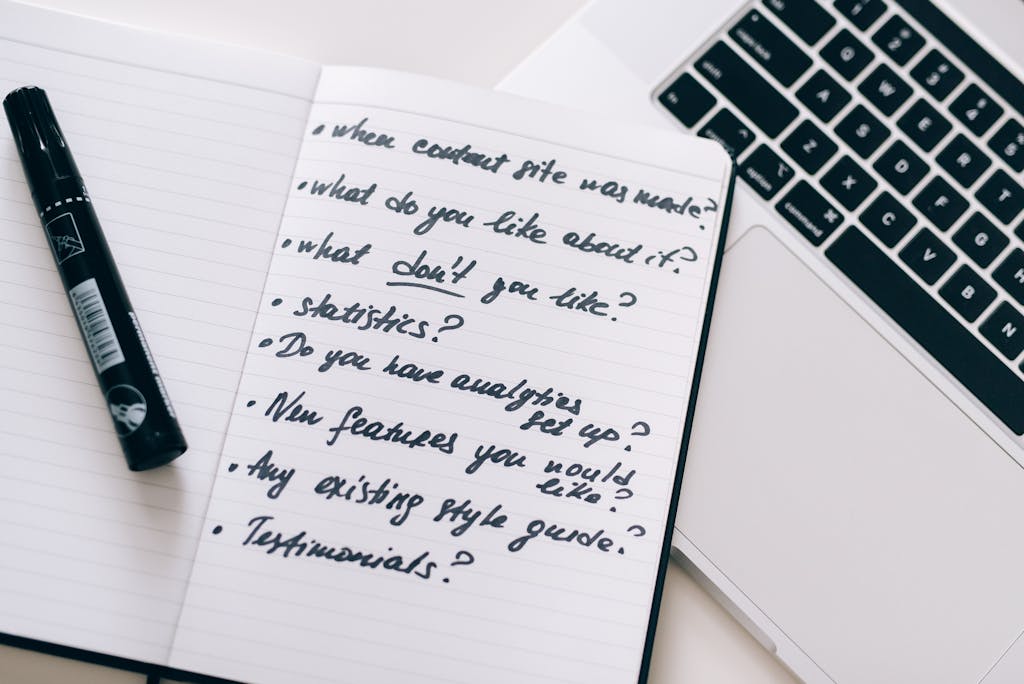 • when content site was made?
• what do you like about it?
• what don't you like?
• statistics?
• Do you have analytics
set up?
• New features you would
like?
• Any existing style guide?
• Testimonials?
tab
caps lock
shift
fn
option
command
1
2
3
4
5
Q
W
E
R
T
A
S
D
F
G
H
Z
X
C
V
B
N